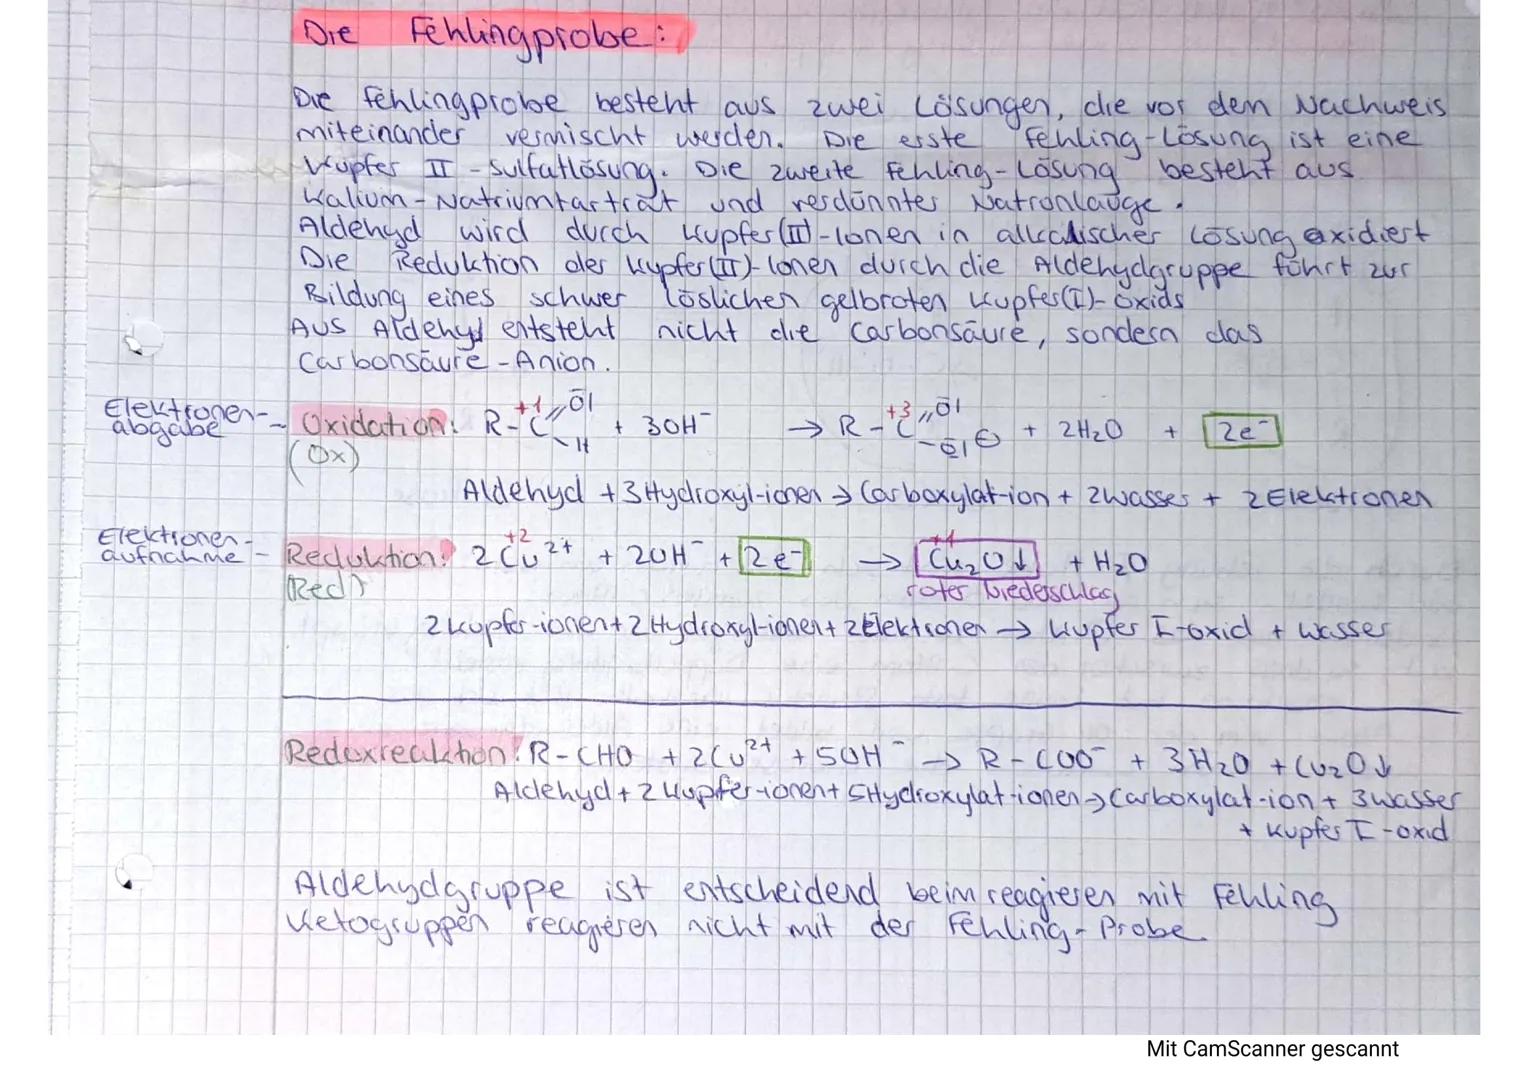 Die Fehlingprobe:
Die Fehlingprobe besteht aus zwei Lösungen, die vor dem Nachweis
miteinander vermischt werden. Die erste Fehling-Lösung ist eine
Kupfer II - sulfatlösung. Die zweite Fehling-Lösung besteht aus
Kalium-Natriumtartrat und verdünnter Natronlauge.
Aldehyd wird durch Kupfer(II)-Ionen in alkalischer Lösung oxidiert
Die Reduktion der Kupfer(II)-Ionen durch die Aldehydgruppe führt zur
Bildung eines schwer löslichen gelbroten Kupfer(I)-oxids
Aus Aldehyd entsteht nicht die Carbonsäure, sondern das
Carbonsäure-Anion.
Elektronen-
abgabe - Oxidation: R-C(+1)(=O)-H + 3OH⁻ → R-C(+3)(=O)-O⊖ + 2H₂O + 2e⁻
(Ox)
Aldehyd + 3Hydroxyl-ionen → Carboxylat-ion + 2Wasser + 2Elektronen
Elektronen-
aufnahme - Reduktion: 2 Cu²⁺ (+2) + 2OH⁻ + 2e⁻ → Cu₂O↓ (+1) + H₂O
(Red) roter Niederschlag
2Kupfer-ionen + 2Hydroxyl-ionen + 2Elektronen → Kupfer I-oxid + Wasser
Redoxreaktion: R-CHO + 2Cu²⁺ + 5OH⁻ → R-COO⁻ + 3H₂O + Cu₂O↓
Aldehyd + 2 Kupfer-ionen + 5Hydroxylat-ionen → Carboxylat-ion + 3Wasser
+ Kupfer I-oxid
Aldehydgruppe ist entscheidend beim reagieren mit Fehling
Ketogruppen reagieren nicht mit der Fehling-Probe
Mit CamScanner gescannt